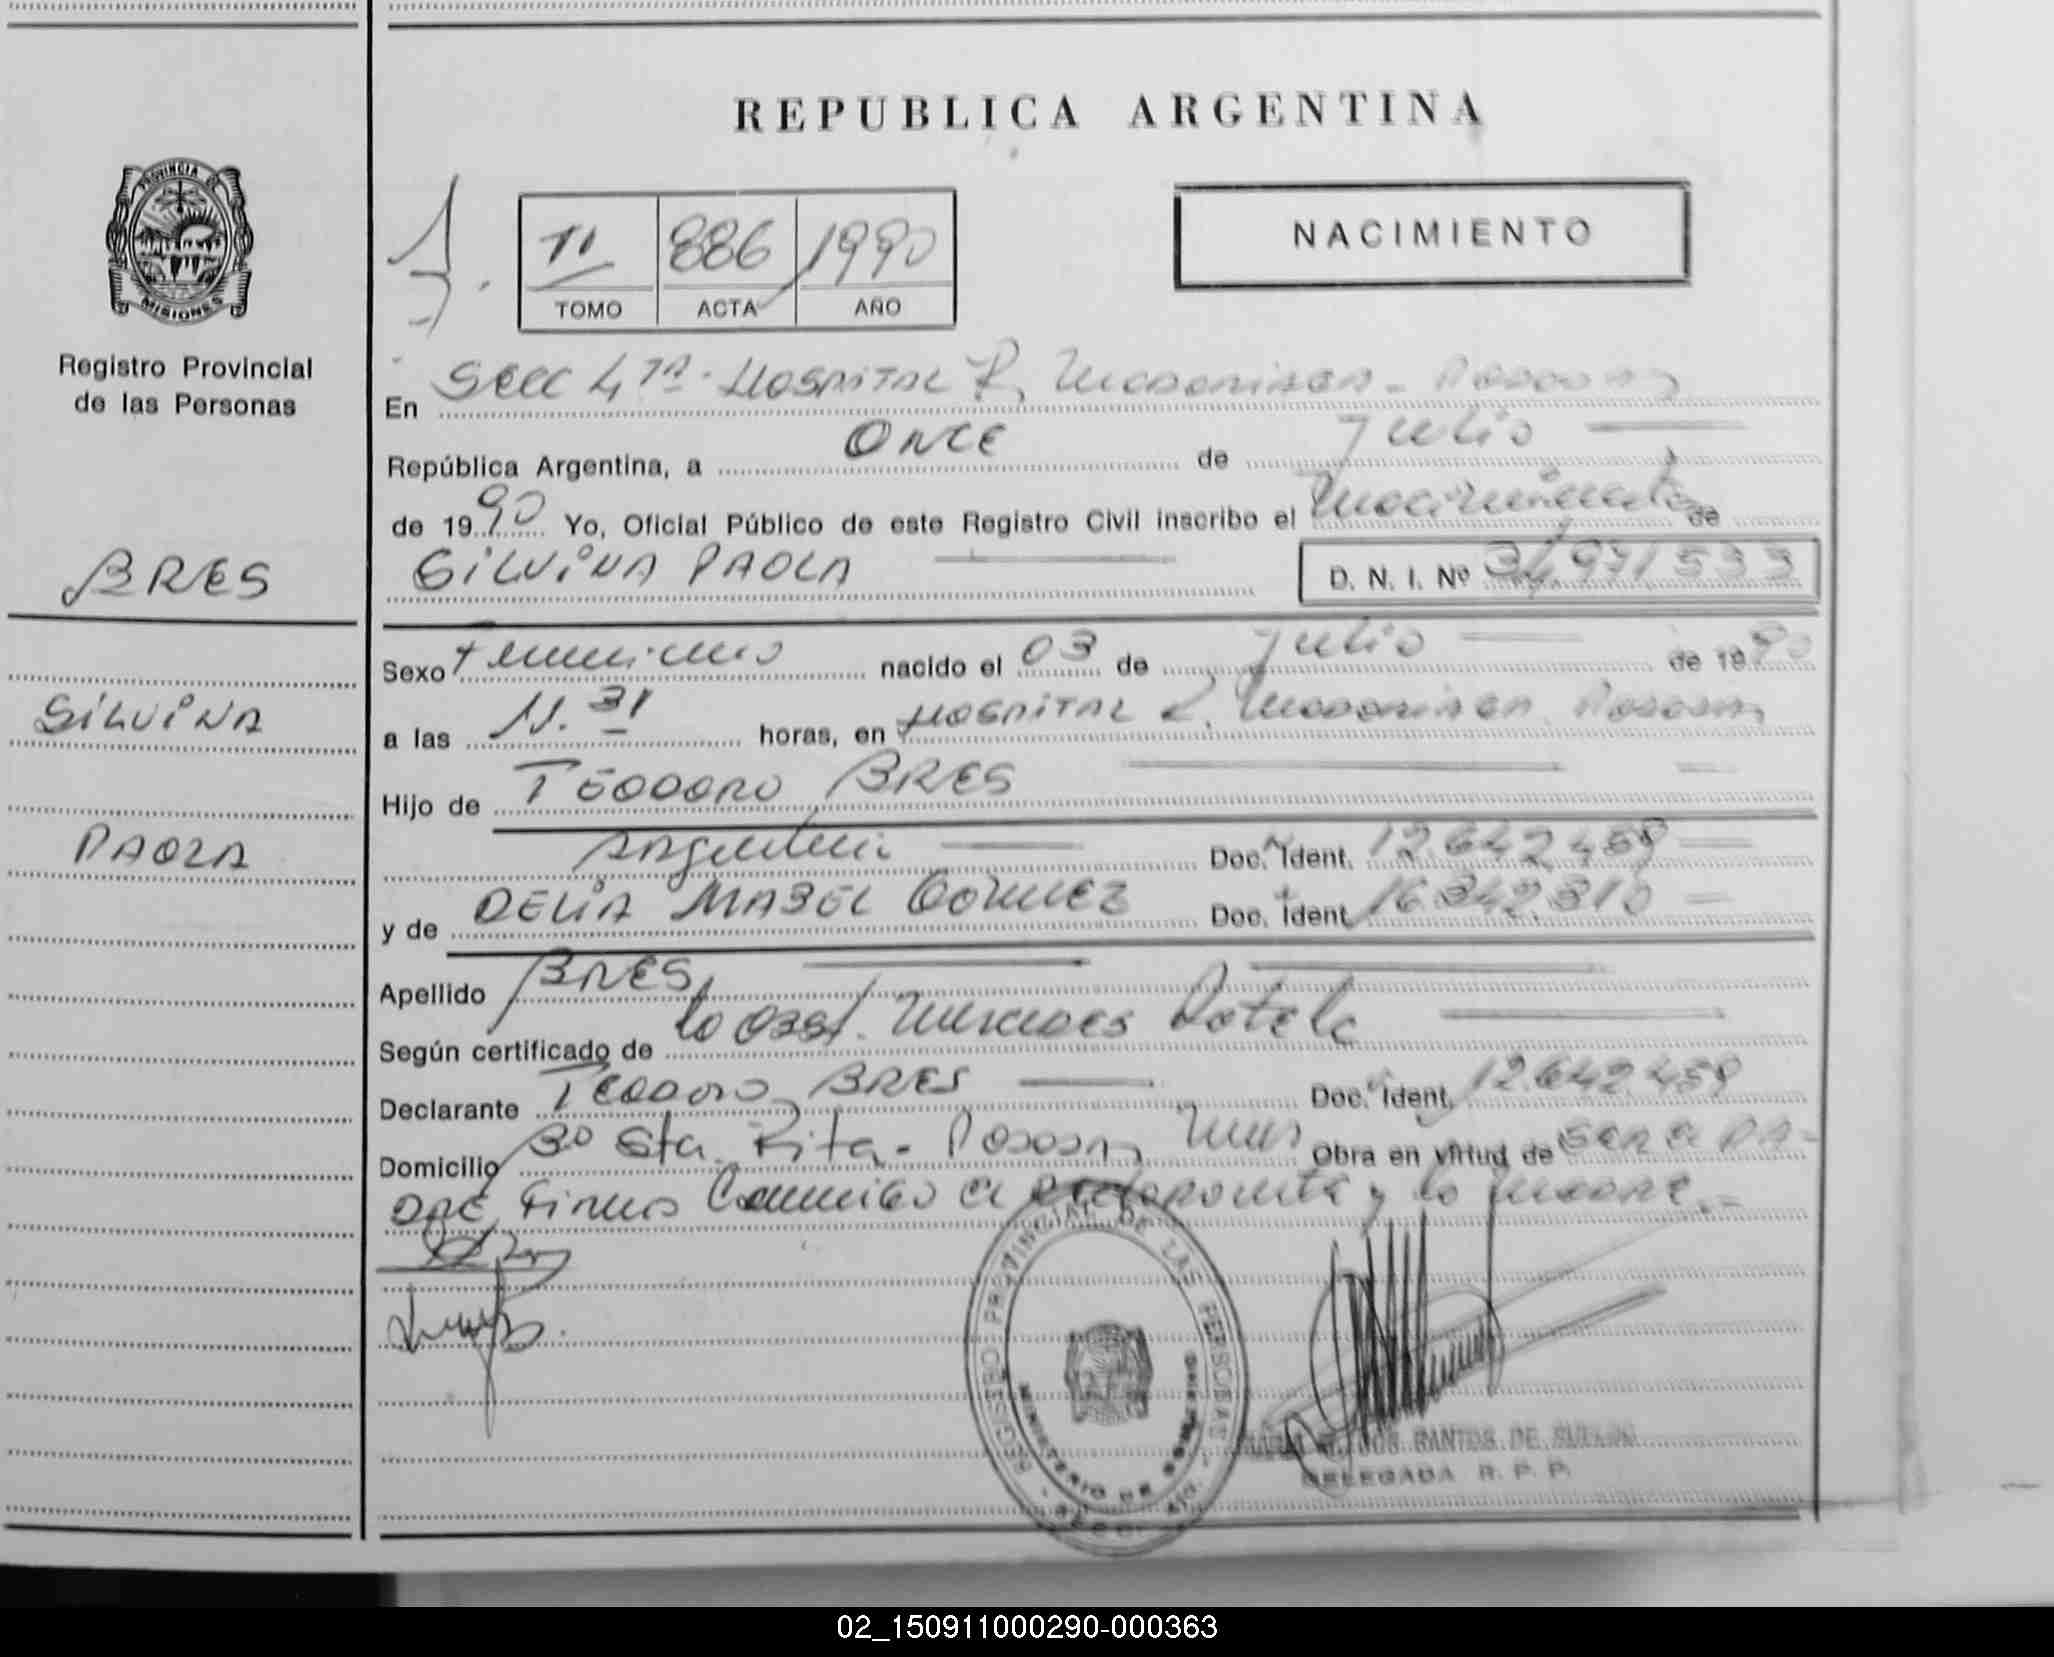 REPUBLICA ARGENTINA
PROVINCIA DE
MISIONES
Registro Provincial
de las Personas
II 886 1990
TOMO ACTA AÑO
NACIMIENTO
En Secc 4TA. HOSPITAL R. Madariaga - Posadas
República Argentina, a ONCE de Julio
de 1990 Yo, Oficial Público de este Registro Civil inscribo el Nacimiento de
SILVINA PAOLA D. N. I. Nº 34,971533
BRES
SILVINA
PAOLA
Sexo femenino nacido el 03 de Julio de 1990
a las 11.31 horas, en HOSPITAL R. Madariaga Posadas
Hijo de TEODORO BRES
Argentina Doc. Ident. 12.642.459
y de DELIA MABEL GOMEZ Doc. Ident. 16.342.310
Apellido BRES
Según certificado de la Obst. Mercedes Rotela
Declarante TEODORO BRES Doc. Ident. 12.642.459
Domicilio Bº Sta. Rita - Posadas, Mnes Obra en virtud de Ser el PA-
DRE, Firma Conmigo el declarante y la madre.-
REGISTRO PROVINCIAL DE LAS PERSONAS
MINISTERIO DE GOBIERNO
DOS SANTOS DE
DELEGADA R. P. P.
02_150911000290-000363